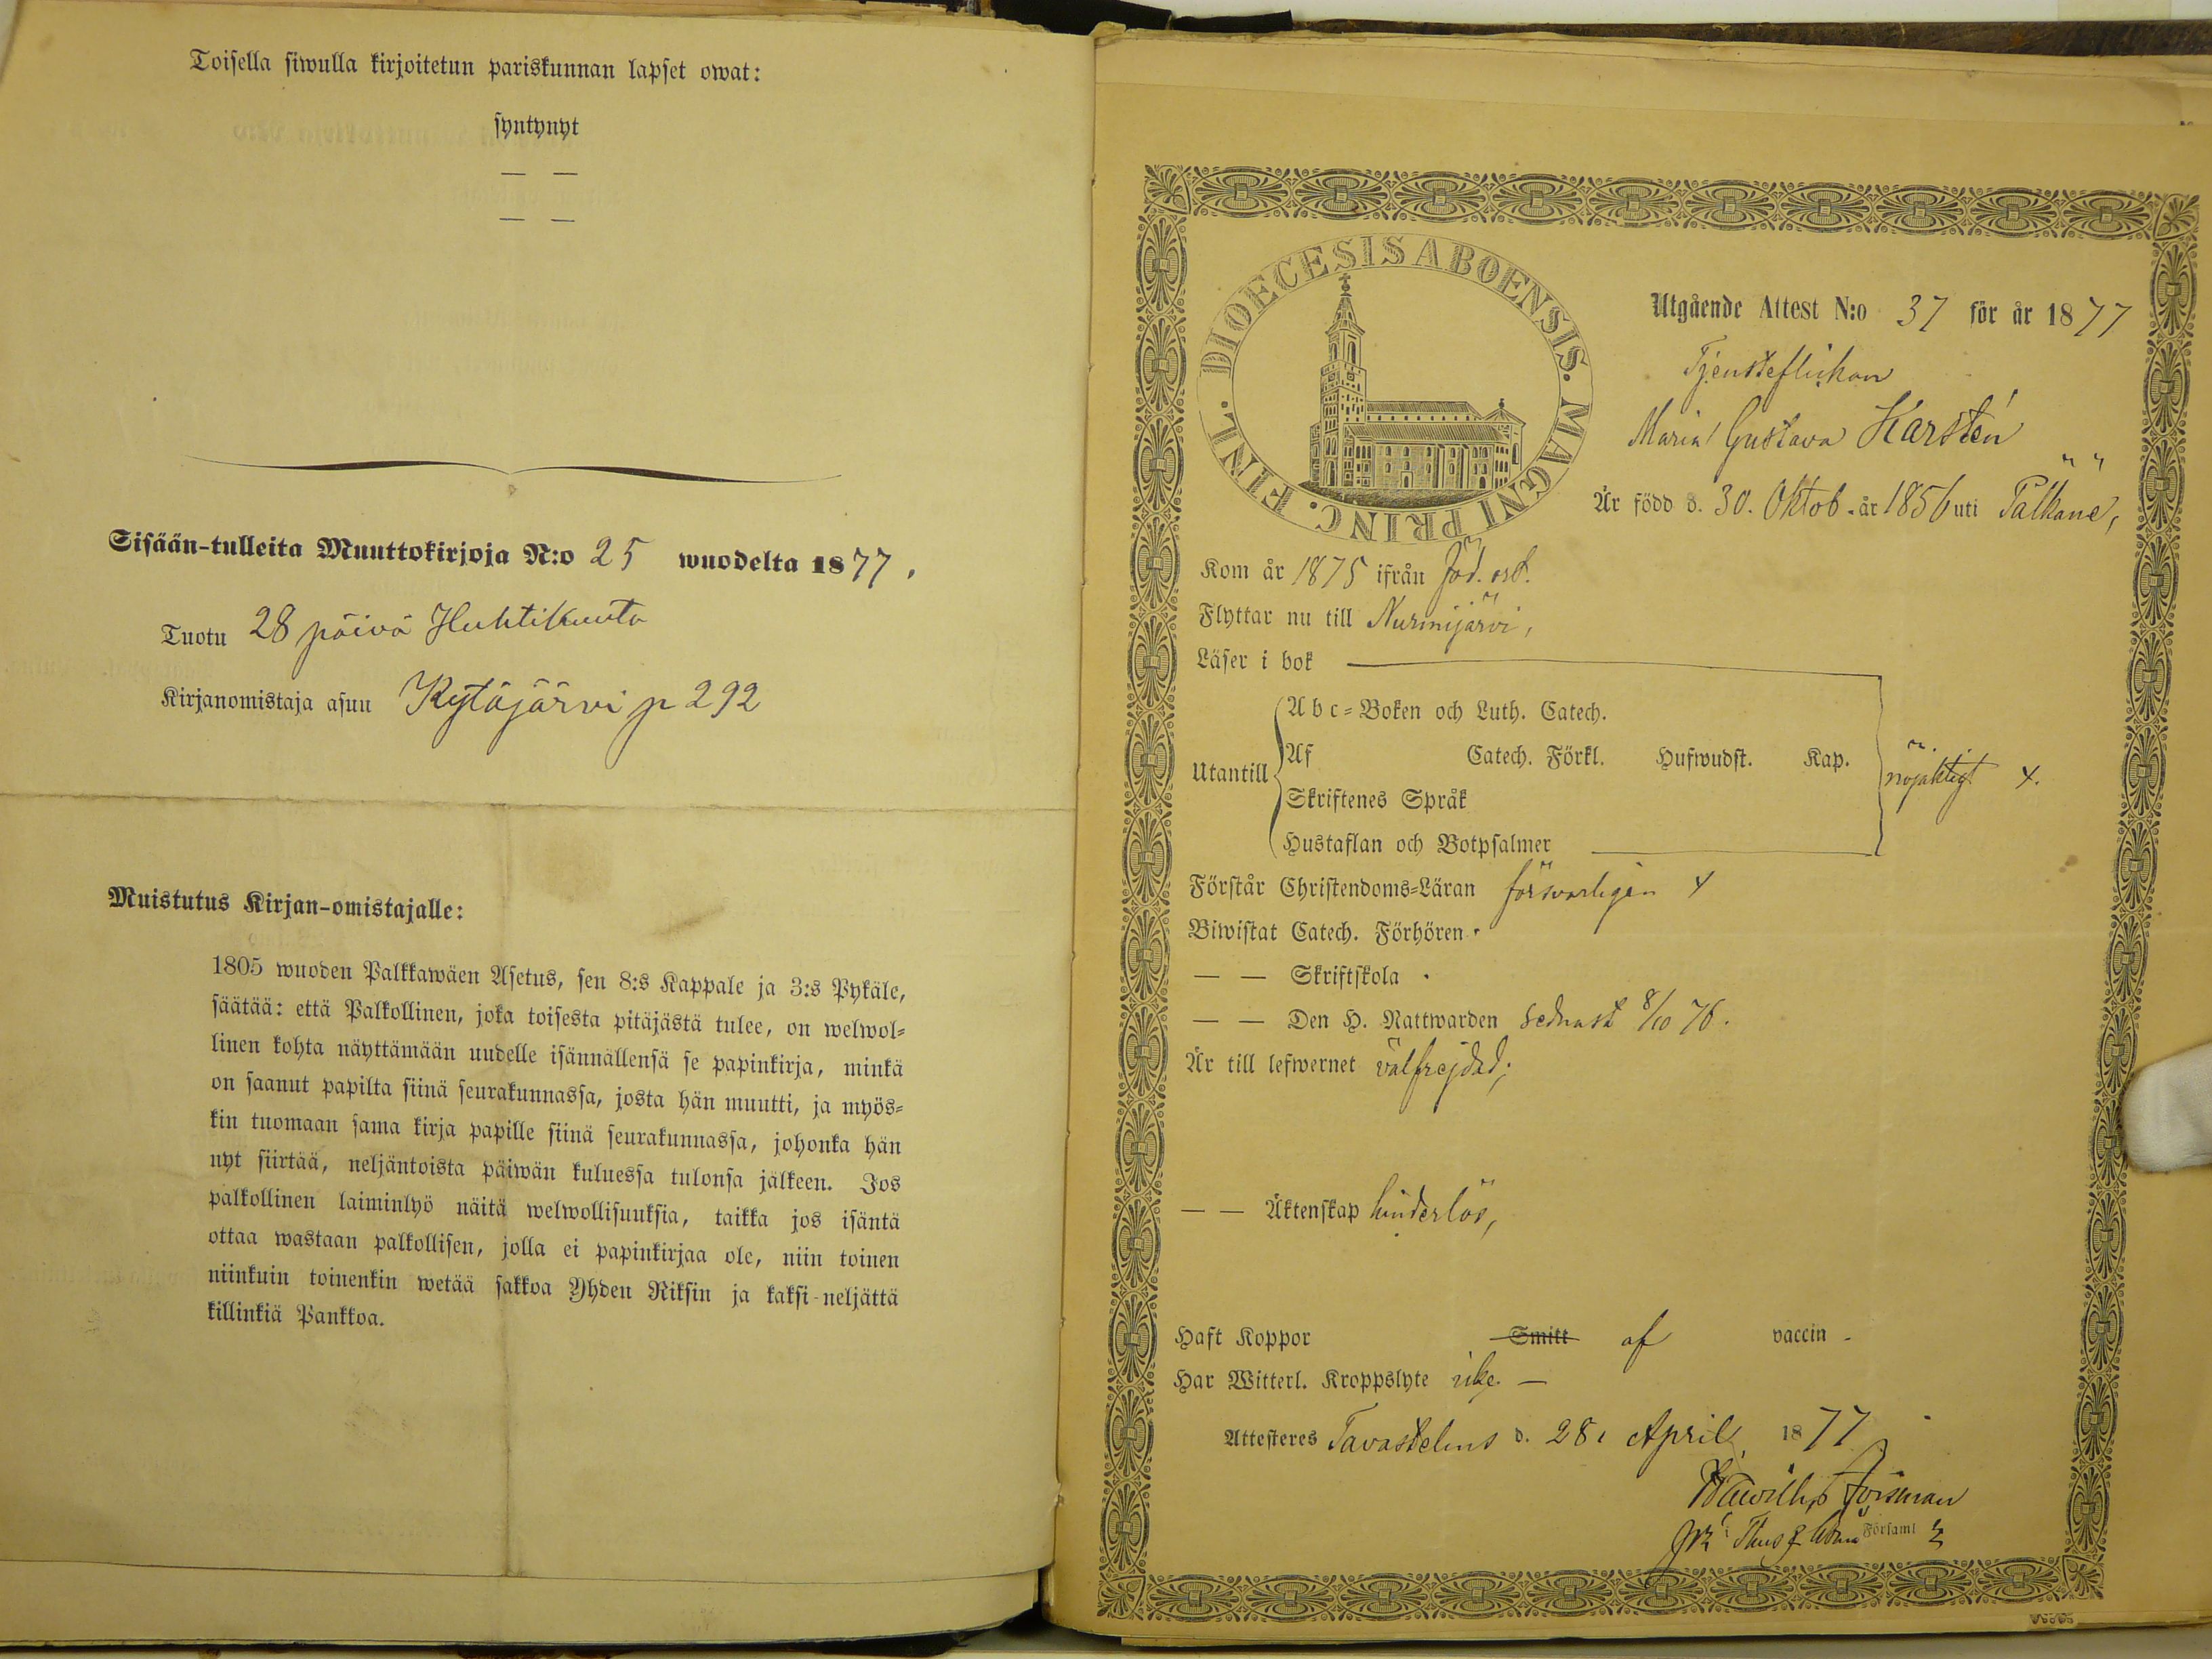 Toisella siwulla kirjoitetun pariskunnan lapset owat:
syntynyt
— —
— —
Sisään-tulleita Muuttokirjoja N:o 25 wuodelta 1877.
Tuotu 28 päivä Huhtikuuta
Kirjanomistaja asuu Kytäjärvi p 292
Muistutus Kirjan-omistajalle:
1805 wuoden Palkkawäen Asetus, sen 8:s Kappale ja 3:s Pykäle,
säätää: että Palkollinen, joka toisesta pitäjästä tulee, on welwol-
linen kohta näyttämään uudelle isännällensä se papinkirja, minkä
on saanut papilta siinä seurakunnassa, josta hän muutti, ja myös-
kin tuomaan sama kirja papille siinä seurakunnassa, johonka hän
nyt siirtää, neljäntoista päiwän kuluessa tulonsa jälkeen. Jos
palkollinen laiminlyö näitä welwollisuuksia, taikka jos isäntä
ottaa wastaan palkollisen, jolla ei papinkirjaa ole, niin toinen
niinkuin toinenkin wetää sakkoa Yhden Riksin ja kaksi-neljättä
killinkiä Pankkoa.
DIOECESIS ABOENSIS. MAGNI PRINC. FINL.
Utgående Attest N:o 37 för år 1877
Tjensteflickan
Maria Gustava Karstén
Är född d. 30. Oktob. år 1856 uti Pälkäne,
Kom år 1875 ifrån föd. ort.
Flyttar nu till Nurmijärvi,
Läser i bok
Abc-Boken och Luth. Catech.
Utantill Af Catech. Förkl. Hufwudst. Kap. nöjaktigt x.
Skriftenes Språk
Hustaflan och Botpsalmer
Förstår Christendoms-Läran försvarligen x
Biwistat Catech. Förhören.
— — Skriftskola.
— — Den H. Nattwarden sednast 8/10 76.
Är till lefwernet välfrejdad;
— — Äktenskap hinderlös,
Haft Koppor Smitt af vaccin.
Har Witterl. Kroppslyte icke. —
Attesteras Tavastehus d. 28. April 1877
Forsman
Församl